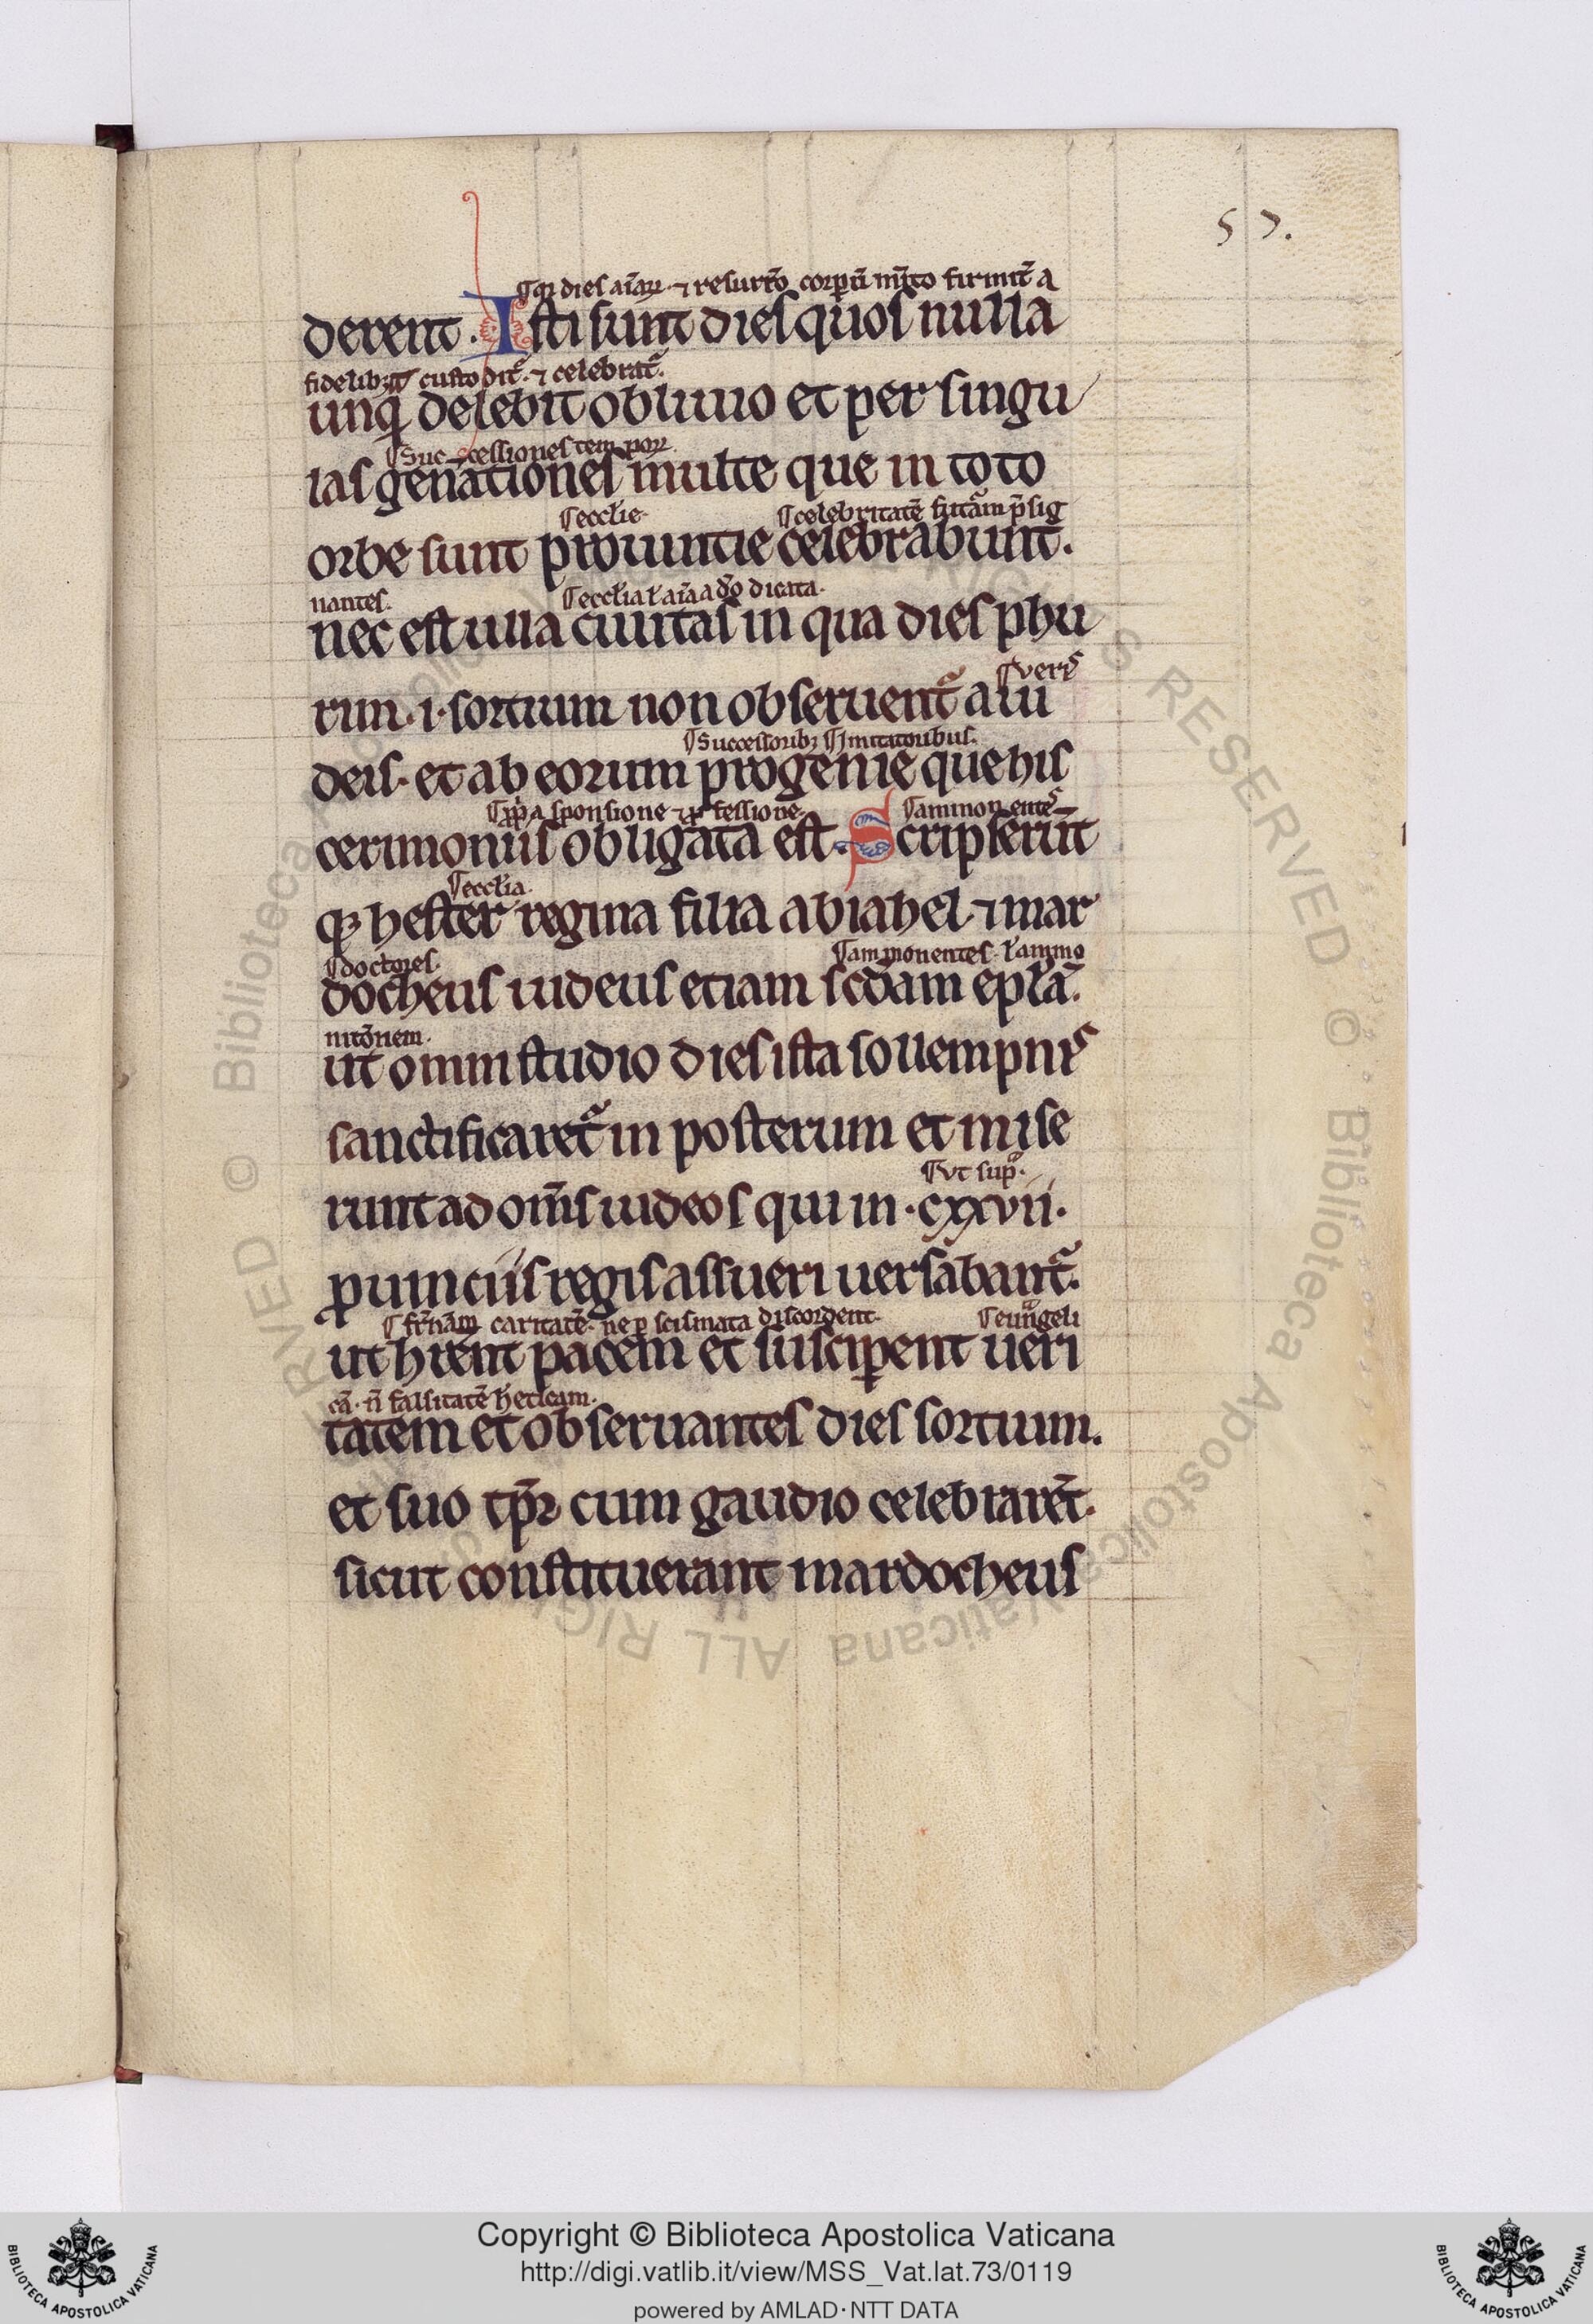 57.
¶ q̄ dies aīaꝝ ⁊ resurr̄o corpoꝝ m̄ito firmit̄ a
derent. Isti sunt dies quos nulla
fidelibꝫ custodit᷑ ⁊ celebrat᷑.
unq̄ delebit obliuio et per singu
¶ Successiones tempoꝝ
las gen̄ationes multe que in toto
¶ eccl̄ie ¶ celebritatē p̄sig
orbe sunt prouintie celebrabunt.
nantes. ¶ eccl̄ia ł aīa a dō dicata.
nec est ulla ciuitas in qua dies phu
¶ ueris
rim .i. sortium non obseruent᷑ a iu
¶ Successoribꝫ ¶ Imitatoribus.
deis. et ab eorum progenie que his
sponsione ⁊ ꝓfessione. ¶ ammonentes
cerimoniis obligata est. Scripserūt
¶ eccl̄ia.
qꝫ hester regina filia abiahel ⁊ mar
¶ doctores. ¶ ammonentes ł ammo
docheus iudeus etiam scd̄am epl̄ā.
nitōnem.
ut omni studio dies ista sollempnis
sanctificaret᷑ in posterum et mise
¶ Vt sup̄.
runt ad om̄s iudeos qui in .cxxvii.
ꝓuinciis regis assueri uersabant᷑.
¶ fr̄nām caritatē. ne ꝑ scismata discordent. ¶ euangeli
ut hr̄ent pacem et susciꝑent ueri
cā. n̄ falsitatē h̄eticam.
tatem et obseruantes dies sortium.
et suo tp̄r cum gaudio celebrarēt.
sicut constituerant mardocheus
Copyright © Biblioteca Apostolica Vaticana
http://digi.vatlib.it/view/MSS_Vat.lat.73/0119
powered by AMLAD·NTT DATA
BIBLIOTECA APOSTOLICA VATICANA
BIBLIOTECA APOSTOLICA VATICANA